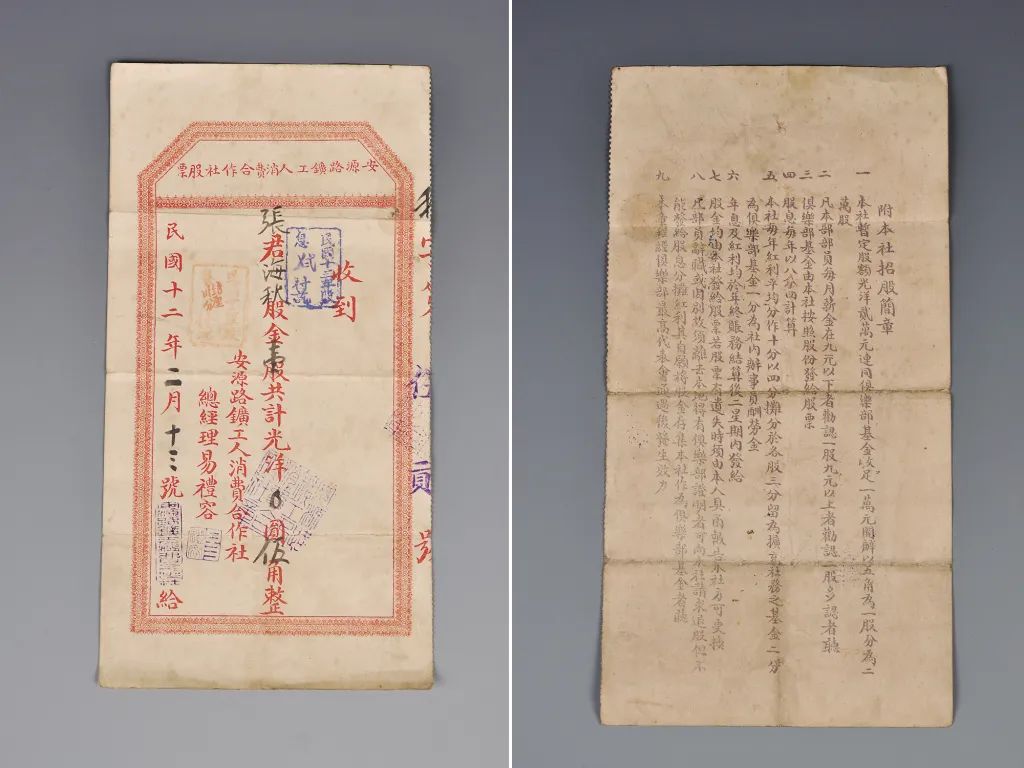 安源路鑛工人消費合作社股票
收到
張君海秋股金壹股共計光洋0圓伍角整
安源路鑛工人消費合作社
總經理易禮容
民國十二年二月十三號給
號
附本社招股簡章
一 本社暫定股額光洋貳萬元連同俱樂部基金一萬元開辦以五角為一股分為二
萬股
二 凡本部部員每月薪金在九元以下者勸認一股九元以上者勸認二股多認者聽
三 俱樂部基金由本社按照股份發給股票
四 股息每年以八分四計算
五 本社每年紅利平均分作十分以四分攤分於各股三分留為擴充社務之基金二分
為俱樂部基金一分為社內辦事員酬勞金
六 年息及紅利均於年終賬務結算後二星期內發給
七 股金均由本社發給股票若股票有遺失時須由本人具函報告本社方可更換
八 凡部員辭職或因別故須離去本地得有俱樂部證明者可向本社請求退股但不
能發給股息分攤紅利其自願將股金存集本社作為俱樂部基金者聽
九 本章程經俱樂部最高代表會通過後發生效力